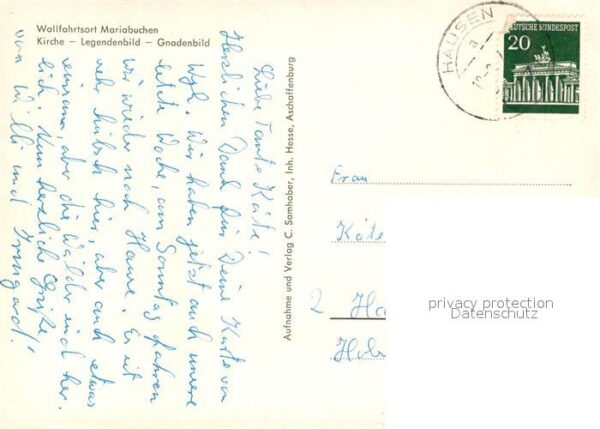 Wallfahrtsort Mariabuchen
Kirche – Legendenbild – Gnadenbild
Liebe Tante Käte!
Herzlichen Dank für Deine Karte von
Wir haben jetzt auch unsere
letzte Woche, am Sonntag fahren
wir wieder nach Hause. Es ist
sehr hübsch hier, aber auch etwas
einsam, aber die Wälder sind herr-
lich. Nun herzliche Grüße
von Willi und Irmgard!
Aufnahme und Verlag C. Samhaber, Inh. Hesse, Aschaffenburg
HAUSEN
DEUTSCHE BUNDESPOST
20
Frau
Käte
2 Ha
privacy protection
Datenschutz